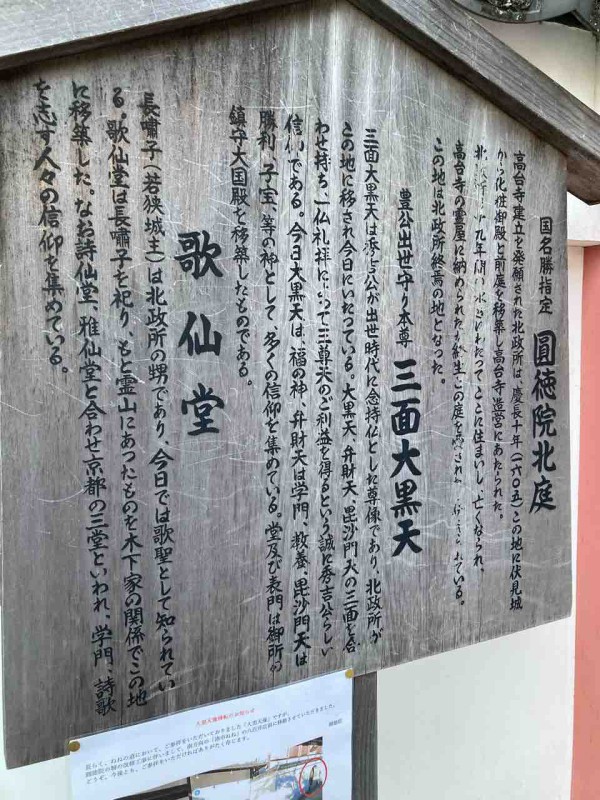 国名勝指定 圓徳院北庭
高台寺建立を発願された北政所は、慶長十年(一六〇五)この地に伏見城
から化粧御殿と前庭を移築し高台寺造営にあたられた。
北 九年間 にわたってここに住まいし、亡くなられ、
高台寺の霊屋に納められたが終生この庭を れている。
この地は北政所終焉の地となった。
豊公出世守り本尊 三面大黒天
三面大黒天は秀吉公が出世時代に念持仏とした尊像であり、北政所が
この地に移され今日にいたっている。大黒天、弁財天、毘沙門天の三面を合
わせ持ち、一仏礼拝によって三尊天のご利益を得るという誠に秀吉公らしい
信仰である。今日大黒天は、福の神、弁財天は学門、教養、毘沙門天は
勝利、子宝、等の神として多くの信仰を集めている。堂及び表門は御所の
鎮守大国殿を移築したものである。
歌仙堂
長嘯子(若狭城主)は北政所の甥であり、今日では歌聖として知られてい
る。歌仙堂は長嘯子を祀り、もと霊山にあつたものを木下家の関係でこの地
に移築した。なお詩仙堂、雅仙堂と合わせ京都の三堂といわれ、学門、詩歌
を志す人々の信仰を集めている。